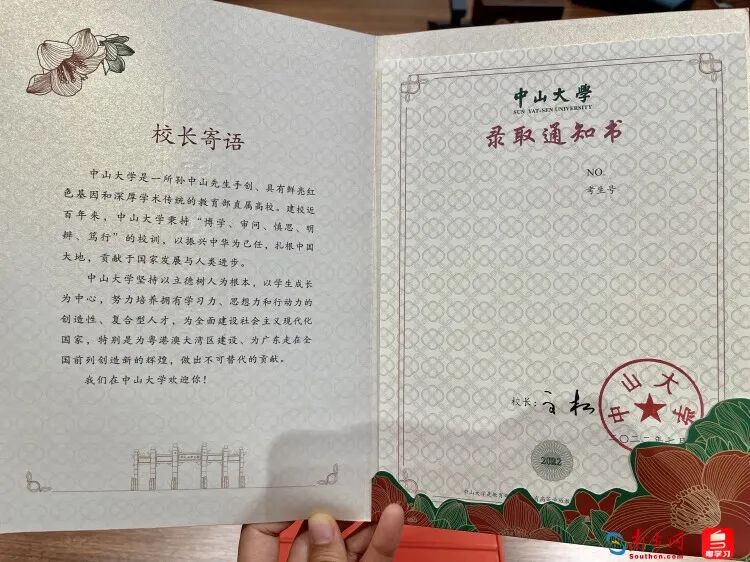 校长寄语
中山大学是一所孙中山先生手创、具有鲜亮红
色基因和深厚学术传统的教育部直属高校。建校近
百年来，中山大学秉持“博学、审问、慎思、明
辨、笃行”的校训，以振兴中华为己任，扎根中国
大地，贡献于国家发展与人类进步。
中山大学坚持以立德树人为根本，以学生成长
为中心，努力培养拥有学习力、思想力和行动力的
创造性、复合型人才，为全面建设社会主义现代化
国家，特别是为粤港澳大湾区建设、为广东走在全
国前列创造新的辉煌，做出不可替代的贡献。
我们在中山大学欢迎你！
中山大學
SUN YAT-SEN UNIVERSITY
录取通知书
NO.
考生号
校长：
中山大学
二〇二二年七月
2022
中山大学是教育部
南方网
Southcn.com
粤学习